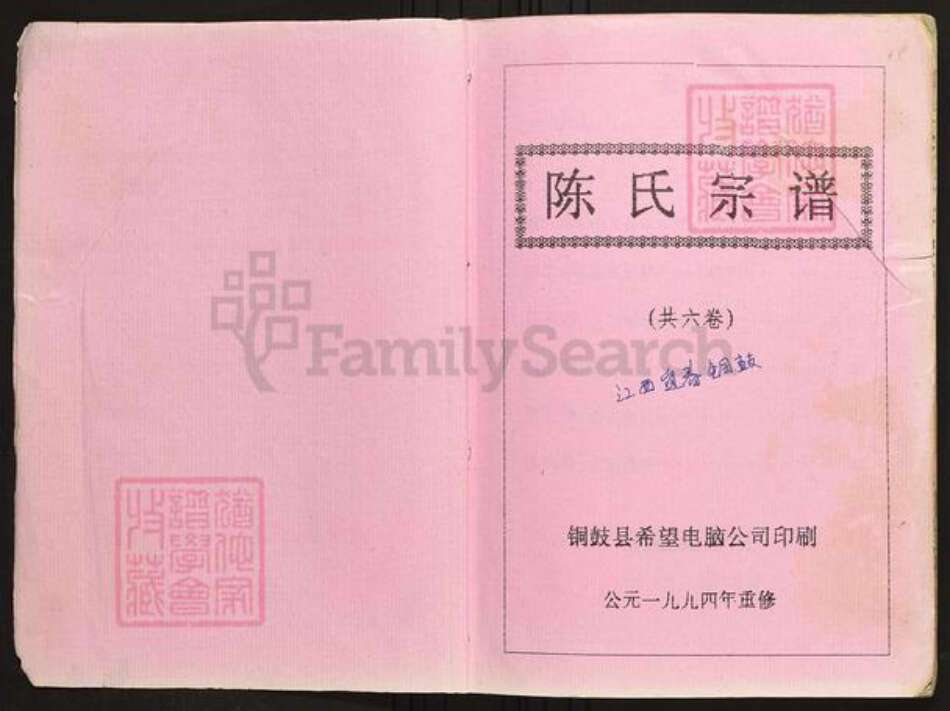 陈氏宗谱
(共六卷)
江西宜春铜鼓
铜鼓县希望电脑公司印刷
公元一九九四年重修
FamilySearch
猶他家
譜學會
收藏
猶他家
譜學會
收藏